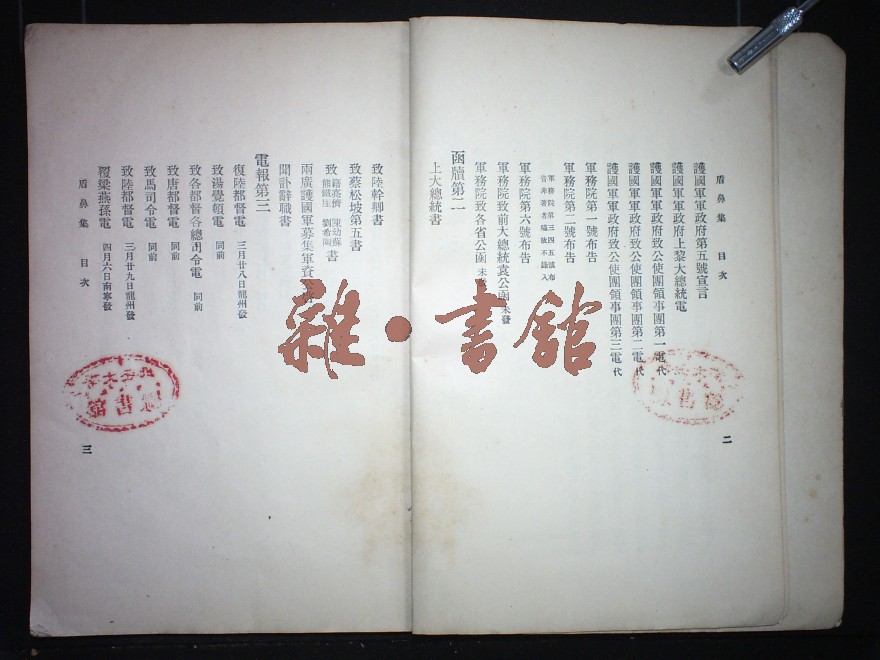 盾鼻集　目次
護國軍軍政府第五號宣言
護國軍軍政府上黎大總統電
護國軍軍政府致公使團領事團第一電 代
護國軍軍政府致公使團領事團第二電 代
護國軍軍政府致公使團領事團第三電 代
軍務院第一號布告
軍務院第二號布告
軍務院第三四五號布
告非著者屬稿故不錄入
軍務院第六號布告
軍務院致前大總統袁公函 未發
軍務院致各省公函 未發
函牘第二
上大總統書
二
致陸幹卿書
致蔡松坡第五書
致籍亮儕 陳幼蘇
熊鐵崖 劉希陶 書
兩廣護國軍募集軍資
聞訃辭職書
電報第三
復陸都督電 三月廿八日龍州發
致湯覺頓電 同前
致各都督各總司令電 同前
致唐都督電 同前
致馬司令電 同前
致陸都督電 三月廿九日龍州發
覆梁燕孫電 四月六日南寧發
盾鼻集　目次
三
雜·書館